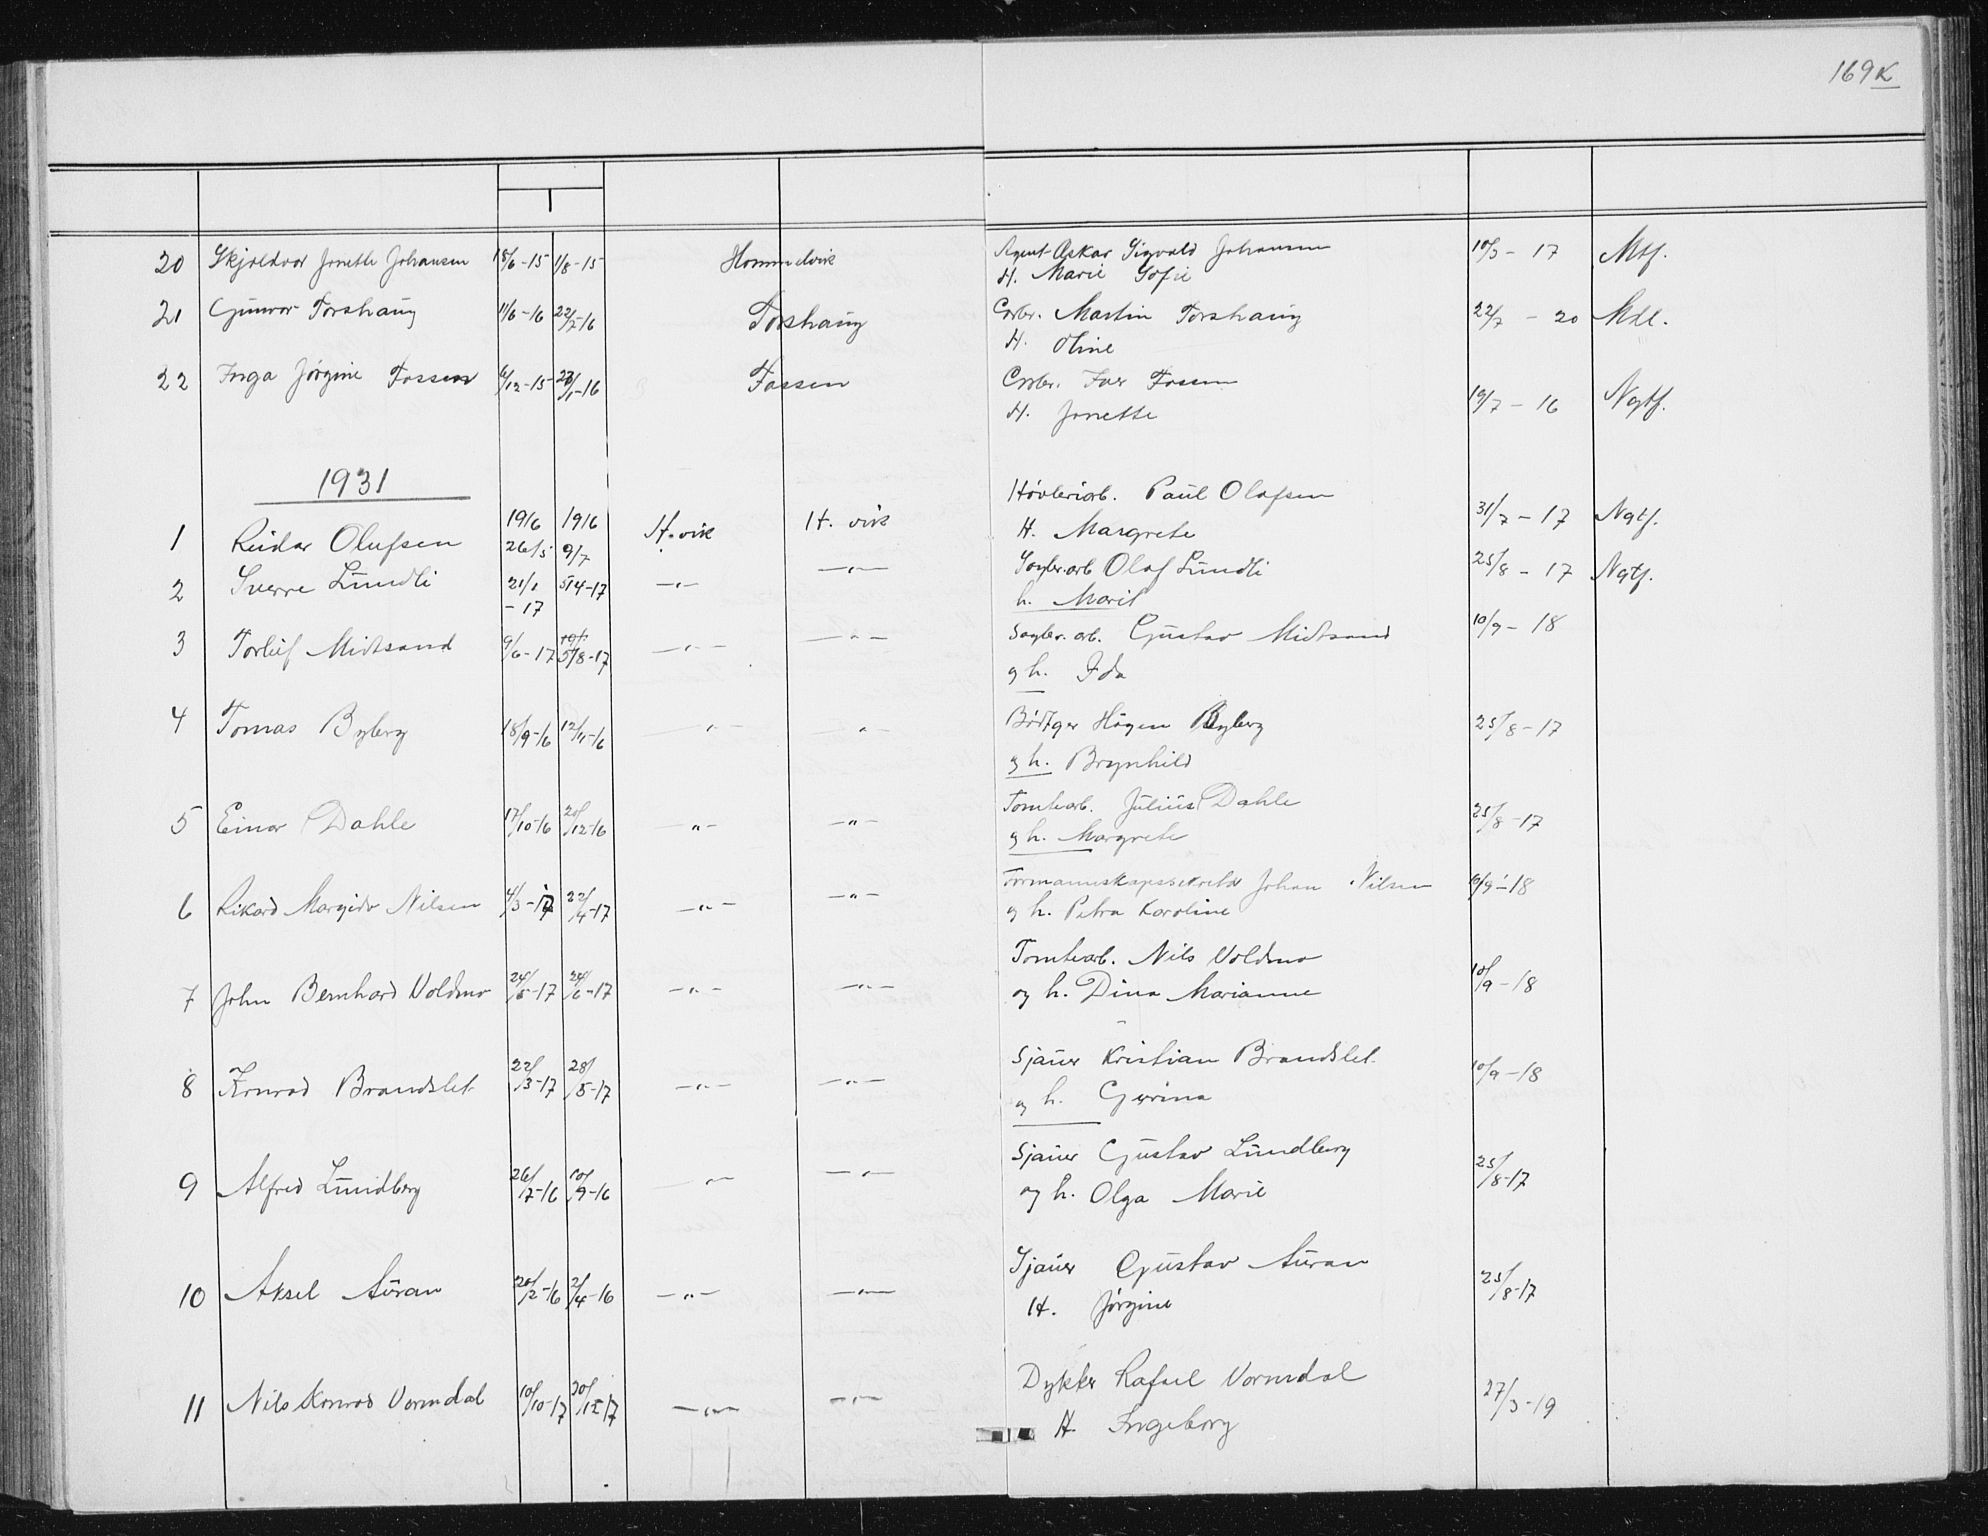 169 K
20 Skjoldvor Jonette Johansen 18/6-15 1/8-15 Hommelvik Agent Oskar Sigvald Johansen 10/3 - 17 Mtf.
H. Marie Sofie
21 Gunvor Torshaug 11/6-16 22/2-16 Torshaug Grbr. Martin Torshaug 22/7 - 20 Mdl.
H. Oline
22 Inga Jørgine Fossen 6/12-15 23/1-16 Fossen Grbr. Iver Fossen
H. Jonette 19/7 - 16 Ngtf.
1931
Høvleriarb. Paul Olafsen
1 Reidar Olufsen 1916 26/5 1916 9/7 H.vik H. vik H. Margrete 31/7 - 17 Ngtf.
2 Sverre Lundli 21/1 - 17 5/4-17 -"- -"- Sagbr.arb Olaf Lundli 25/8 - 17 Ngtf.
h. Marit
3 Torleif Midtsand 9/6-17 5/8-17 -"- -"- Sagbr. arb. Gustav Midtsand 10/9 - 18
og h. Ida
4 Tomas Byberg 18/9-16 12/11-16 -"- " - Bødtger Høgen Byberg 25/8-17
og h. Brynhild
5 Einar Dahle 17/10-16 20/12-16 -"- -"- Tomtearb. Julius Dahle 25/8-17
og h. Margrete
6 Rikard Margido Nilsen 4/3-17 22/4-17 -"- -"- Johan Nilsen 10/9-18
og h. Petra Karoline
7 John Bernhard Voldmo 24/5-17 24/6-17 -"- -"- Tomtearb. Nils Voldmo 10/9-18
og h. Dina Marianne
8 Konrad Brandslet 22/3-17 28/5-17 -"- -"- Sjauer Kristian Brandslet 10/9-18
og h. Gurina
9 Alfred Lundberg 26/7-16 10/9-16 -"- -"- Sjauer Gustav Lundberg 25/8-17
og h. Olga Marie
10 Aksel Auran 20/2-16 2/4-16 -"- -"- Sjauer Gustav Auran 25/8-17
H. Jørgine
11 Nils Konrad Vormdal 10/10-17 30/12-17 -"- -"- Dykker Rafael Vormdal 27/3-19
H Ingeborg